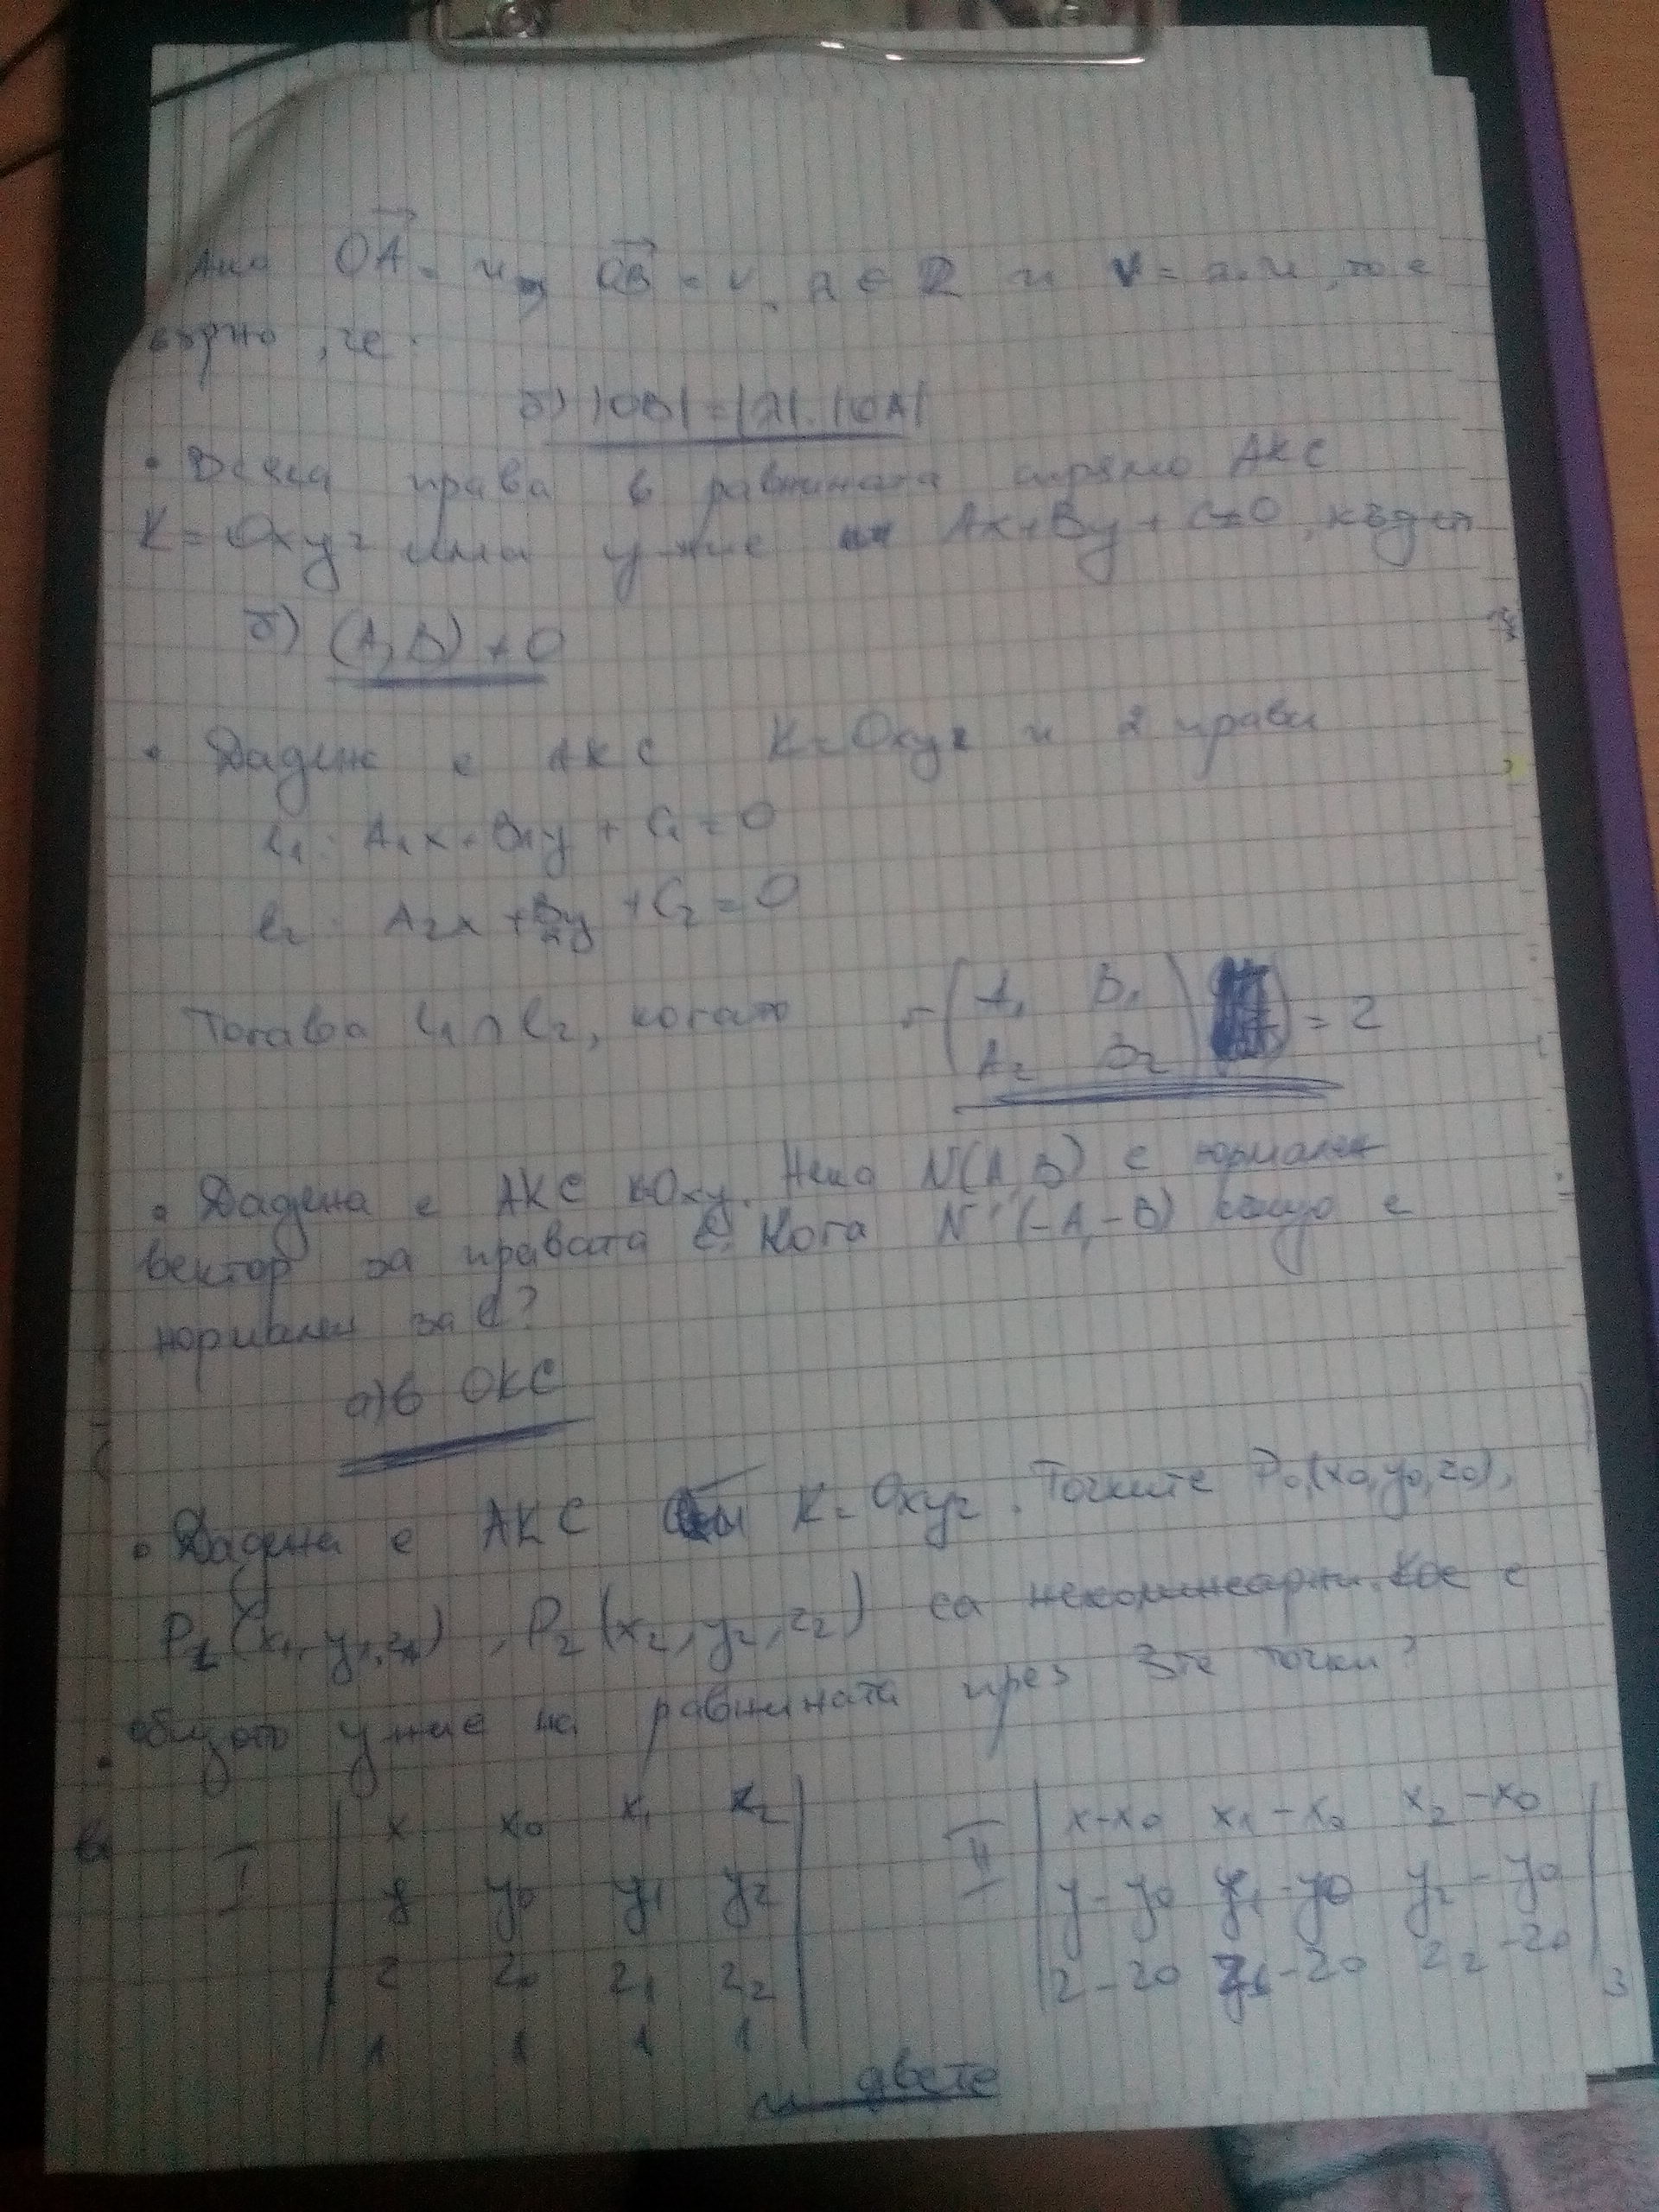 Ако OA = u, OB = v, λ ∈ R и v = λ.u, то е
вярно, че:
б) |OB| = |λ|.|OA|
• Всяка права в равнината спрямо АКС
K = Oxyz има у-ние Ax+By+C=0, където
б) (A,B) ≠ 0
• Дадена е АКС K=Oxyz и 2 прави
l1: A1x+B1y + C1 = 0
l2: A2x + B2y + C2 = 0
Тогава l1 ∩ l2, когато r (A1 B1
A2 B2) = 2
• Дадена е АКС K=Oxy. Нека N(A,B) е нормален
вектор за правата l. Кога N'(-A,-B) също е
нормален за l?
а) в ОКС
• Дадена е АКС K=Oxyz. Точките P0(x0,y0,z0),
P1(x1,y1,z1), P2(x2,y2,z2) са неколинеарни. Кое е
общото у-ние на равнината през 3те точки?
I | x x0 x1 x2 | II | x-x0 x1-x0 x2-x0 |
y y0 y1 y2 y-y0 y1-y0 y2-y0
z z0 z1 z2 z-z0 z1-z0 z2-z0
1 1 1 1
и двете
3